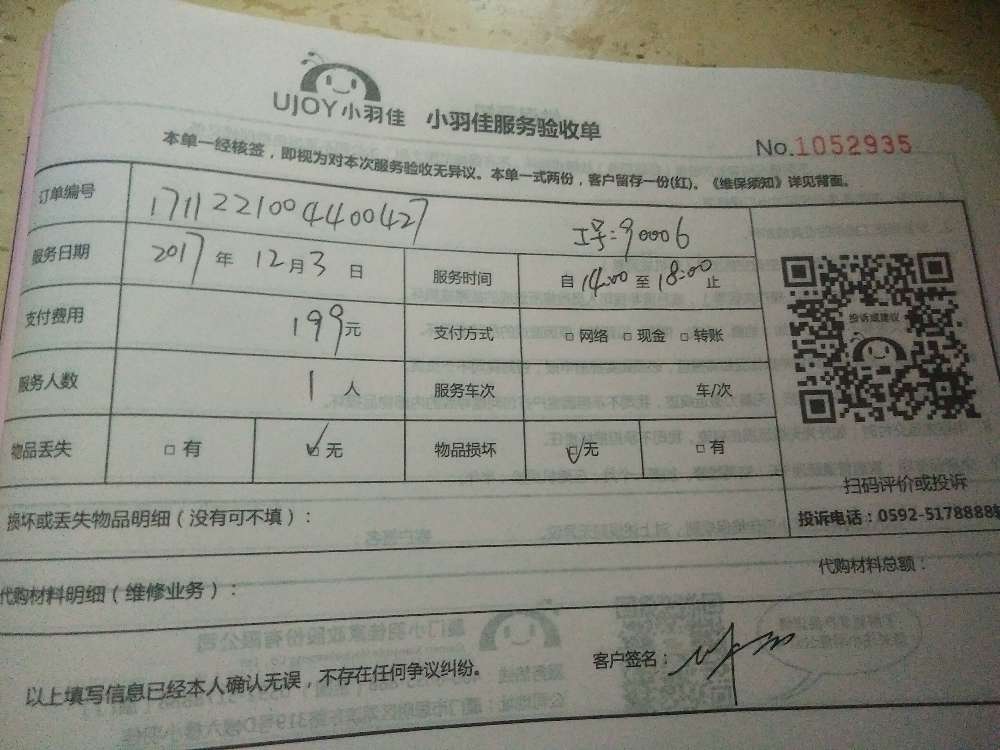 UJOY小羽佳 小羽佳服务验收单
No.1052935
本单一经核签，即视为对本次服务验收无异议。本单一式两份，客户留存一份(红)。《维保须知》详见背面。
订单编号 1711221004400427 工号:90006
服务日期 2017年12月3日 服务时间 自14:00至18:00止
支付费用 199元 支付方式 □网络 □现金 □转账
投诉或建议
服务人数 1人 服务车次 车/次
物品丢失 □有 □无 物品损坏 □无 □有
扫码评价或投诉
损坏或丢失物品明细（没有可不填）：
投诉电话：0592-5178888
代购材料明细（维修业务）：
代购材料总额：
以上填写信息已经本人确认无误，不存在任何争议纠纷。
客户签名：